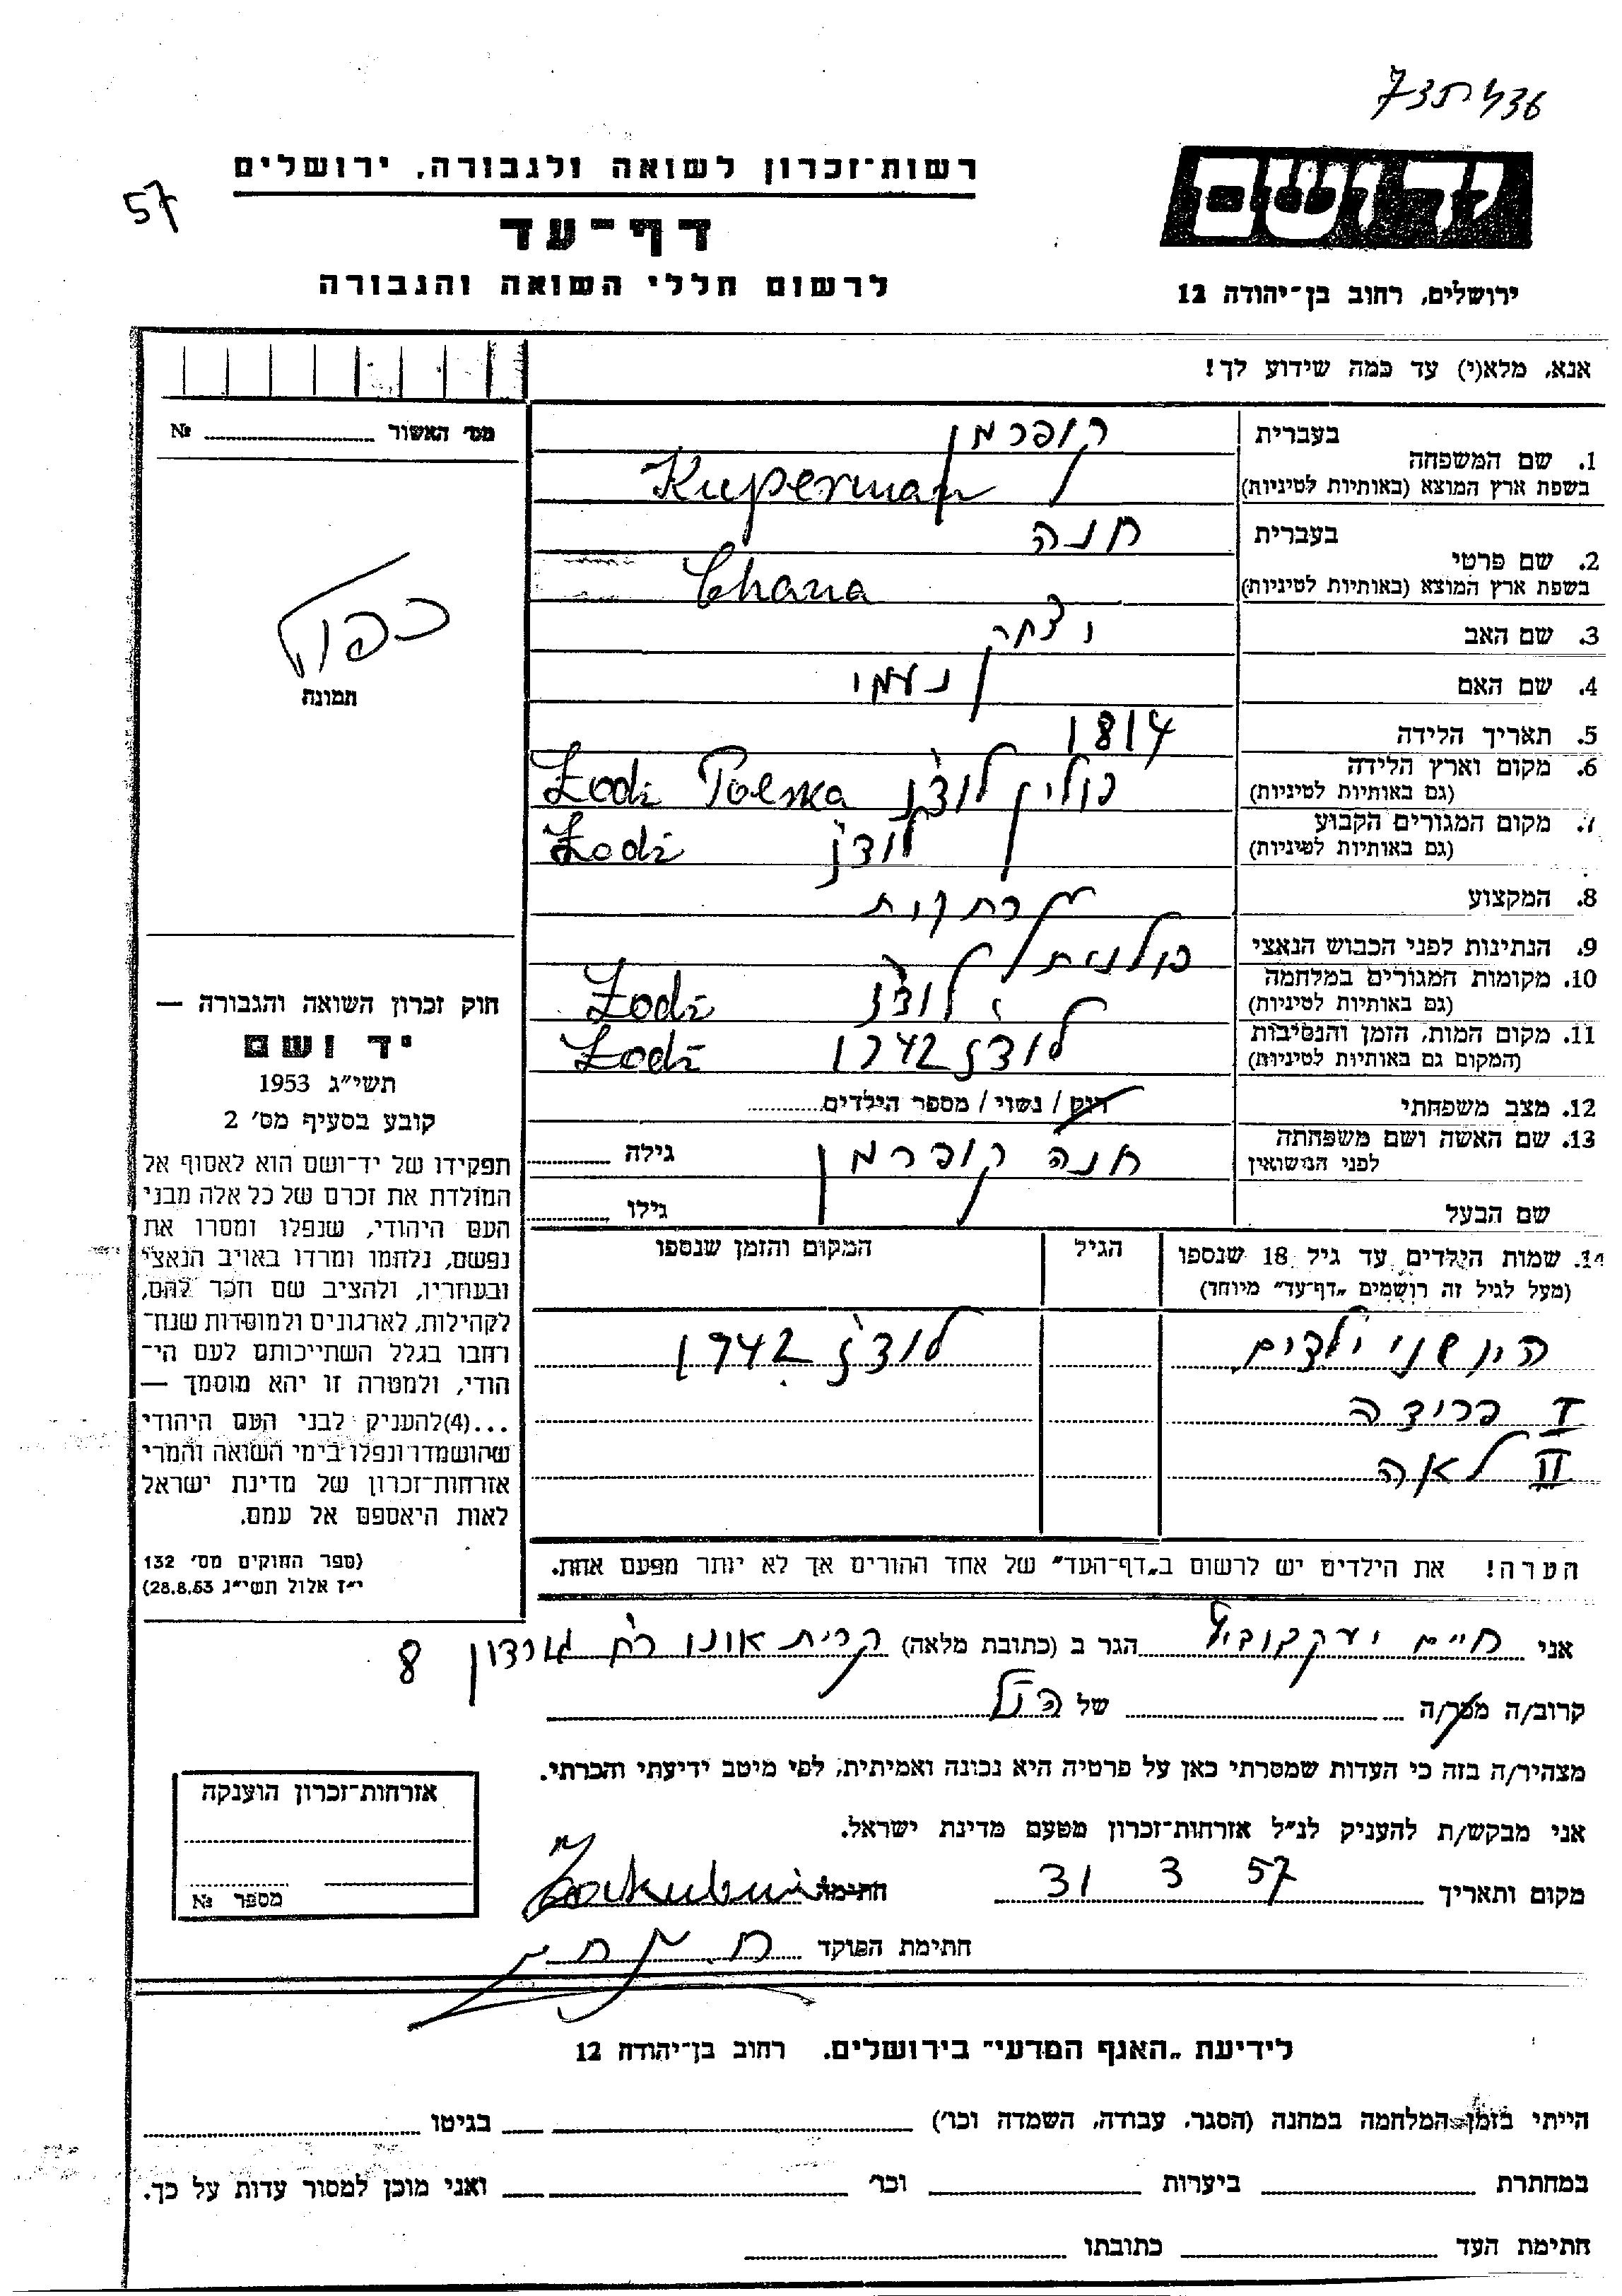 רשות־זכרון לשואה ולגבורה, ירושלים
57
דף־עד
לרשום חללי השואה והגבורה
יד ושם
ירושלים, רחוב בן־יהודה 12
אנא, מלא(י) עד כמה שידוע לך!
מס׳ האשור № 
1. שם המשפחה
בעברית קופרמן
בשפת ארץ המוצא (באותיות לטיניות) Kuperman
2. שם פרטי
בעברית חנה
בשפת ארץ המוצא (באותיות לטיניות) Chana
3. שם האב יצחק
4. שם האם נעמי
5. תאריך הלידה 1814
6. מקום וארץ הלידה
(גם באותיות לטיניות) פולין לודז׳ Łodź Polska
7. מקום המגורים הקבוע
(גם באותיות לטיניות) לודז׳ Łodź
8. המקצוע
9. הנתינות לפני הכבוש הנאצי פולנית
10. מקומות המגורים במלחמה
(גם באותיות לטיניות) לודז׳ Łodź
11. מקום המות, הזמן והנסיבות
(המקום גם באותיות לטיניות) לודז׳ 1942 Łodź
12. מצב משפחתי רווק / נשוי / מספר הילדים
13. שם האשה ושם משפחתה
לפני הנישואין חנה קופרמן גילה
שם הבעל גילו
14. שמות הילדים עד גיל 18 שנספו
(מעל לגיל זה רושמים „דף־עד” מיוחד)
הגיל
המקום והזמן שנספו
היו שני ילדים לודז׳ 1942
I פרידה
II לאה
הערה! את הילדים יש לרשום ב„דף־העד” של אחד ההורים אך לא יותר מפעם אחת.
כפול
תמונה
חוק זכרון השואה והגבורה —
יד ושם
תשי״ג 1953
קובע בסעיף מס׳ 2
תפקידו של יד־ושם הוא לאסוף אל
המולדת את זכרם של כל אלה מבני
העם היהודי, שנפלו ומסרו את
נפשם, נלחמו ומרדו באויב הנאצי
ובעוזריו, ולהציב שם וזכר להם,
לקהילות, לארגונים ולמוסדות שנח־
רחבו בגלל השתייכותם לעם הי־
הודי, ולמטרה זו יהא מוסמך —
...(4)להעניק לבני העם היהודי
שהושמדו ונפלו בימי השואה והמרי
אזרחות־זכרון של מדינת ישראל
לאות היאספם אל עמם.
(ספר החוקים מס׳ 132
י״ז אלול תשי״ג 28.8.53)
אני חיים יעקובוביץ הגר ב (כתובת מלאה) קרית אונו רח׳ גורדון 8
קרוב/ה מכר/ה של הנ״ל
מצהיר/ה בזה כי העדות שמסרתי כאן על פרטיה היא נכונה ואמיתית, לפי מיטב ידיעתי והכרתי.
אני מבקש/ת להעניק לנ״ל אזרחות־זכרון מטעם מדינת ישראל.
מקום ותאריך 31 3 57 חתימה
חתימת הפוקד
אזרחות־זכרון הוענקה
מספר №
לידיעת „האגף המדעי” בירושלים. רחוב בן־יהודה 12
הייתי בזמן המלחמה במחנה (הסגר, עבודה, השמדה וכו׳) בגיטו
במחתרת ביערות וכו׳ ואני מוכן למסור עדות על כך.
חתימת העד כתובתו